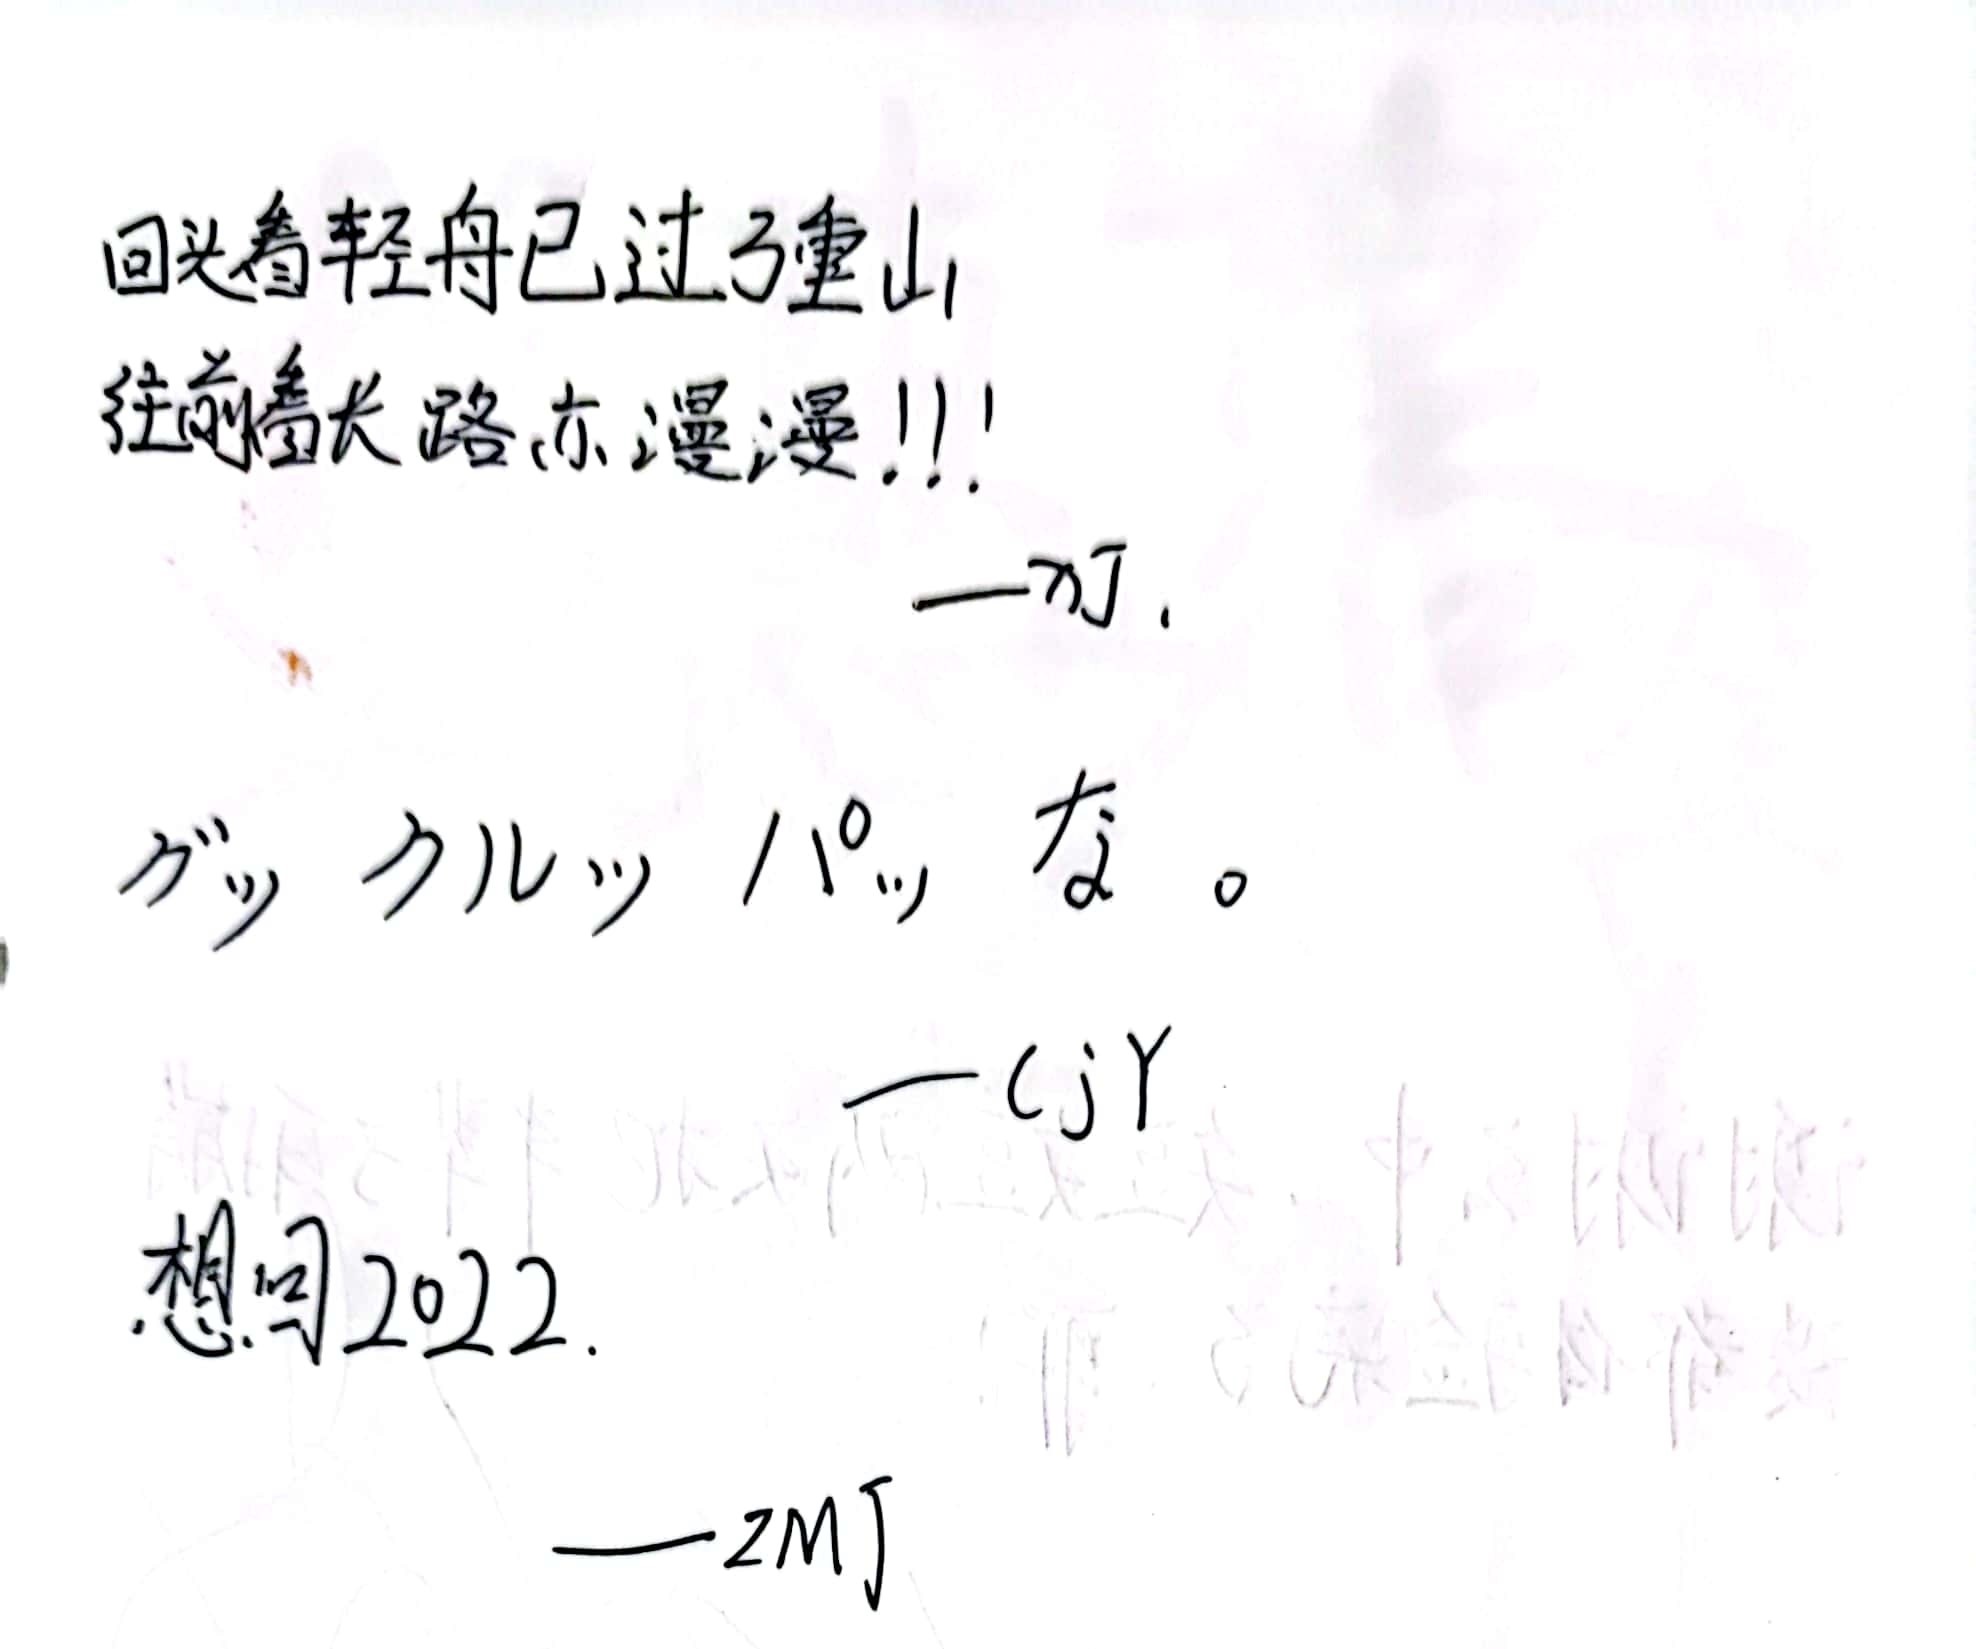 回头看轻舟已过了重山
往前看长路亦漫漫!!!
グッ クルッ パッ な 。
—CjY
想问2022.
—ZMJ